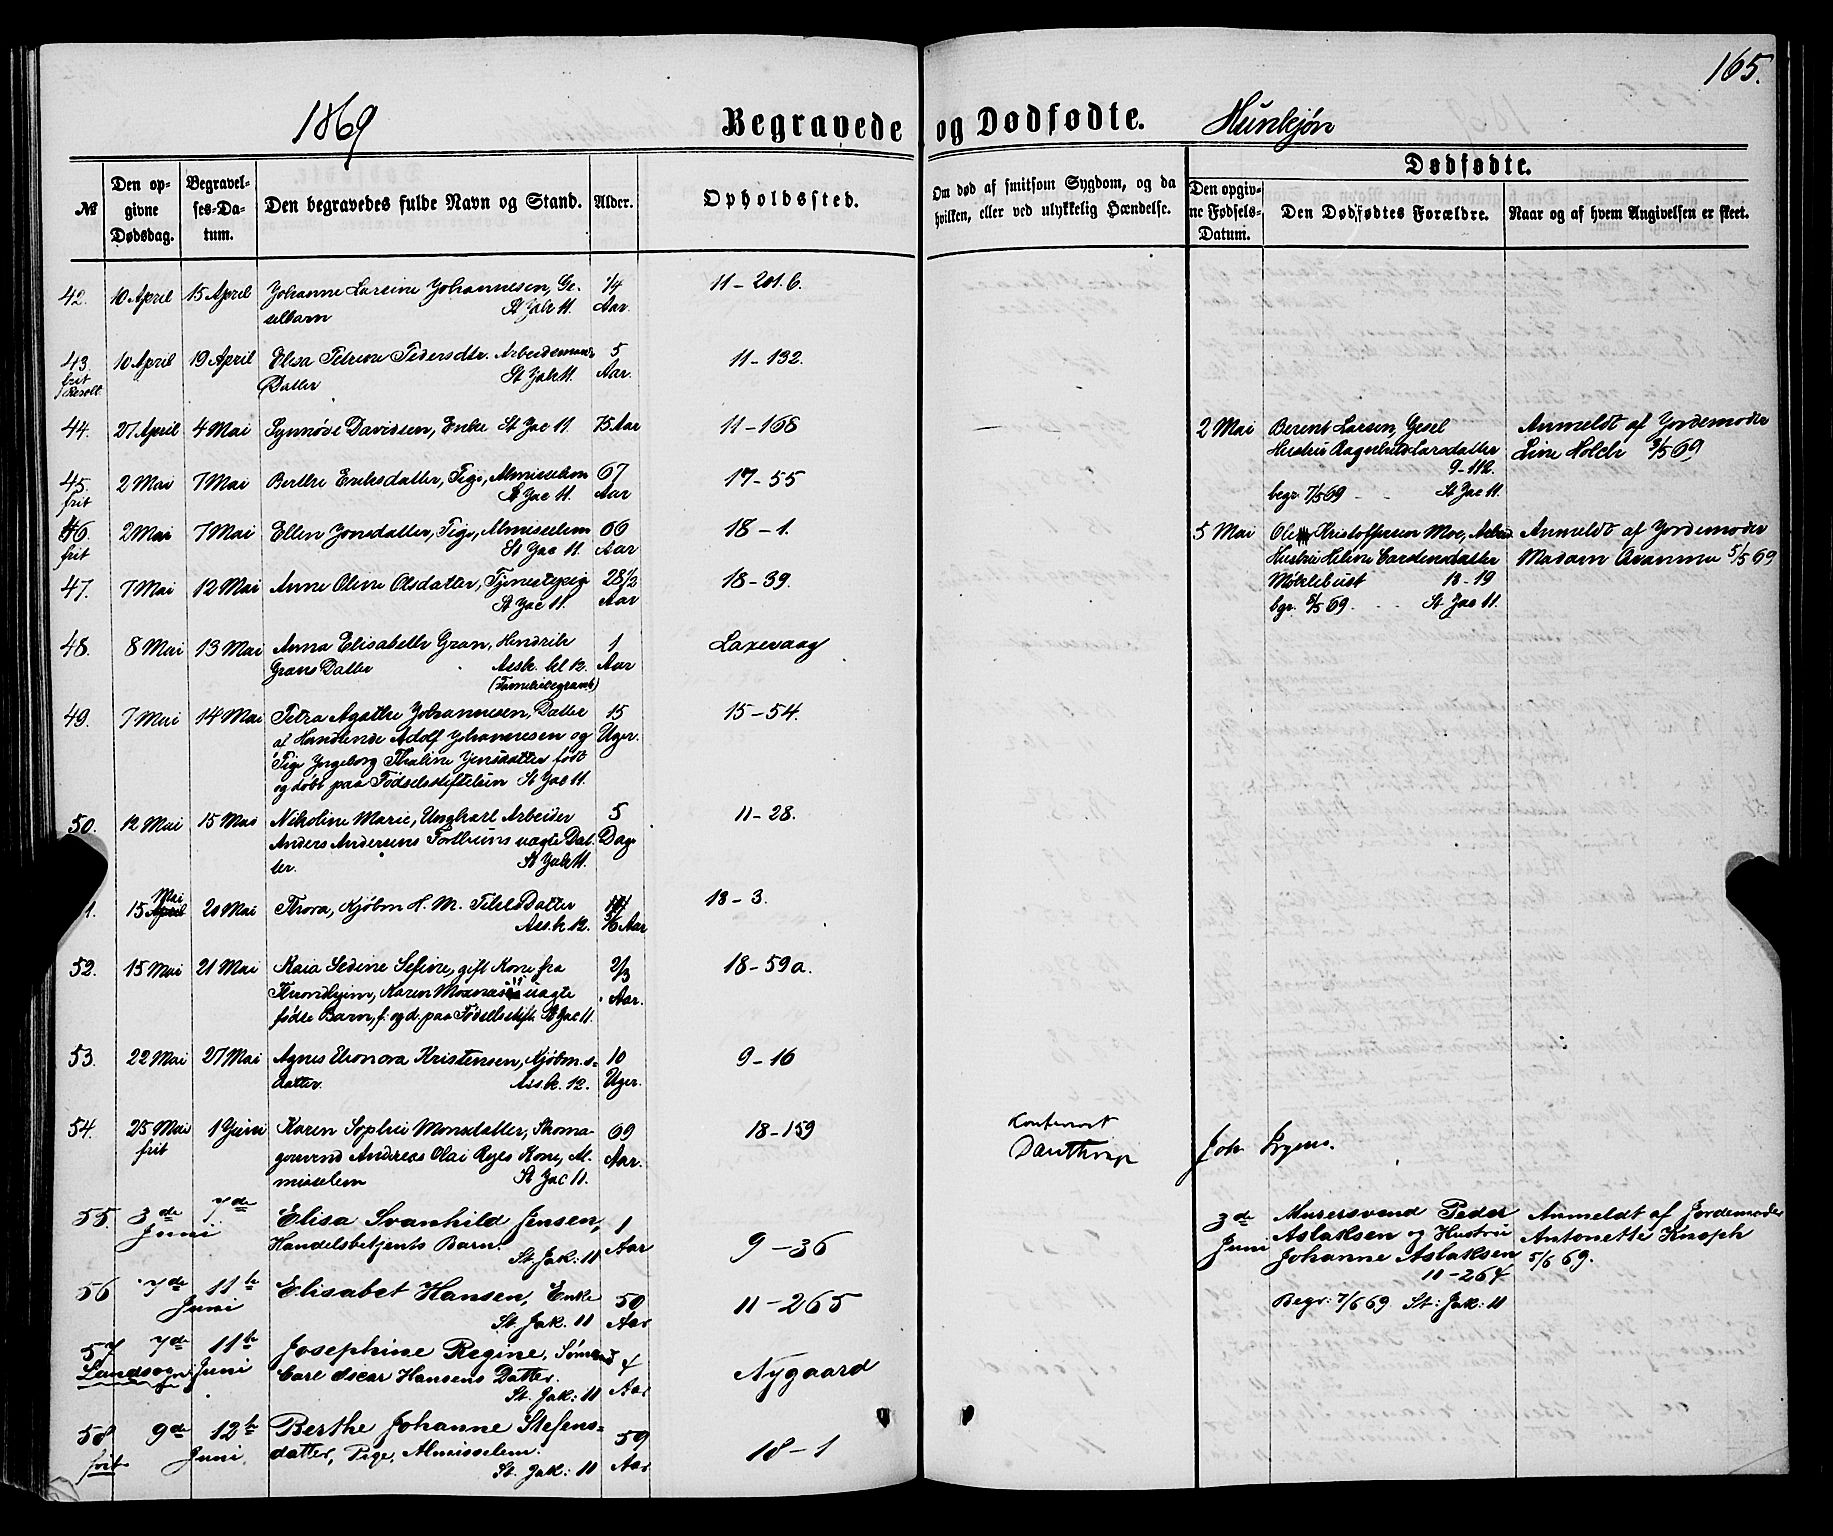 165.
1869 Begravede og Dødfødte. Hunkjøn
№
Den opgivne Dødsdag.
Begravelses-Datum.
Den begravedes fulde Navn og Stand.
Alder.
Opholdssted.
Om død af smitsom Sygdom, og da hvilken, eller ved ulykkelig Hændelse.
Dødfødte.
Den opgivne Fødsels-Datum.
Den Dødfødtes Forældre.
Naar og af hvem Angivelsen er skeet.
42. 10 April 15 April Johanne Larsine Johannesen, Ge- 1/4 11-201 b.
selbarn St Jak 11. Aar.
43. 10 April 19 April Elisa Petrine Pedersdtr. Arbeidsmands 5 11-132.
frit Datter St Jak 11. Aar.
Resolt.
44. 27 April 4 Mai Synnøve Davidsen, Enke St Jac 11. 75 Aar 11-168
45. 2 Mai 7 Mai Berthe Eriksdatter, Pige, Almisselem 67 17-55
frit St Jac 11. Aar
46. 2 Mai 7 Mai Ellen Jonsdatter, Pige, Almisselem 66 18-1.
frit St Jac 11. Aar
47. 7 Mai 12 Mai Anne Oline Olsdatter, Tjenestepige 28 1/2 18-39.
St Jac 11. Aar
48. 8 Mai 13 Mai Anna Elisabeth Gran, Hendrik 1 Laxevaag
Grans Datter Assk. kl 12. Aar
(Familiebegravels)
49. 7 Mai 14 Mai Petra Agathe Johannesen, Datter 15 15-54.
af Handlende Adolf Johannesen og Uger.
Pige Ingeborg Thaline Jensdatter født
og døbt paa Fødselsstiftelsen St Jac 11.
50. 12 Mai 15 Mai Nikoline Marie, Ungkarl Arbeider 5 11-28.
Anders Andersens Fortbuns uægte Dat- Dage
ter. St Jak 11.
1. 15 Mai 20 Mai Thora, Kjøbm H. M. Datter 18-3.
Assk. 12. 5/6 Aar
52. 15 Mai 21 Mai Kaia Sedine Sefine, gift Kone fra 2/3 18-59a.
Throndhjem, Karen uægte Aar.
fødte Barn, f. og d. paa Fødselsstift. St Jac 11.
53. 22 Mai 27 Mai Agnes Elenora Kristensen, Kjøbm.s- 10 9-16
datter. Assk. 12. Uger.
54. 25 Mai 1 Juni Karen Sophie Monsdatter, Skoma- 69 18-159
frit gersvend Andreas Olai Ryes Kone, Al- Aar.
misselem St Jac 11.
Danthrop
55. 3de 7de Elisa Svanhild Jensen, 1 9-36
Juni Handelsbetjents Barn. Aar
St. Jak: 11
56 7de 11te Elisabet Hansen, Enke 50 11-265
Juni St. Jak: 11 Aar
57 7de 11te Josephine Regine, Sømand 4 Nygaard
Landsogn Juni Carl Oscar Hansens Datter. Aar
St. Jak: 11
58 9de 12te Berthe Johanne Stefens- 59 18-1
frit Juni datter, Pige, Almisselem. Aar
St. Jak: 11
2 Mai Berent Larsen, Gesel Anmeldt af Jordemoder
Hustru Aagerhild Larsdatter Line Holch 3/5 69
9-112.
begr. 7/5 69 St Jac 11.
5 Mai Ole Kristoffersen Moe, Arbeid. Anmeldt af Jordemoder
Hustru Heline Carstensdatter Madam 5/5 69
Møklebust 18-19
bgr. 8/5 69. St Jac 11.
Joh.
3de Murersvend Peder Anmeldt af Jordemoder
Juni Aslaksen og Hustru Antonette Knoph
Johanne Aslaksen 5/6 69.
11-264
Begr: 7/6 69 St: Jak: 11